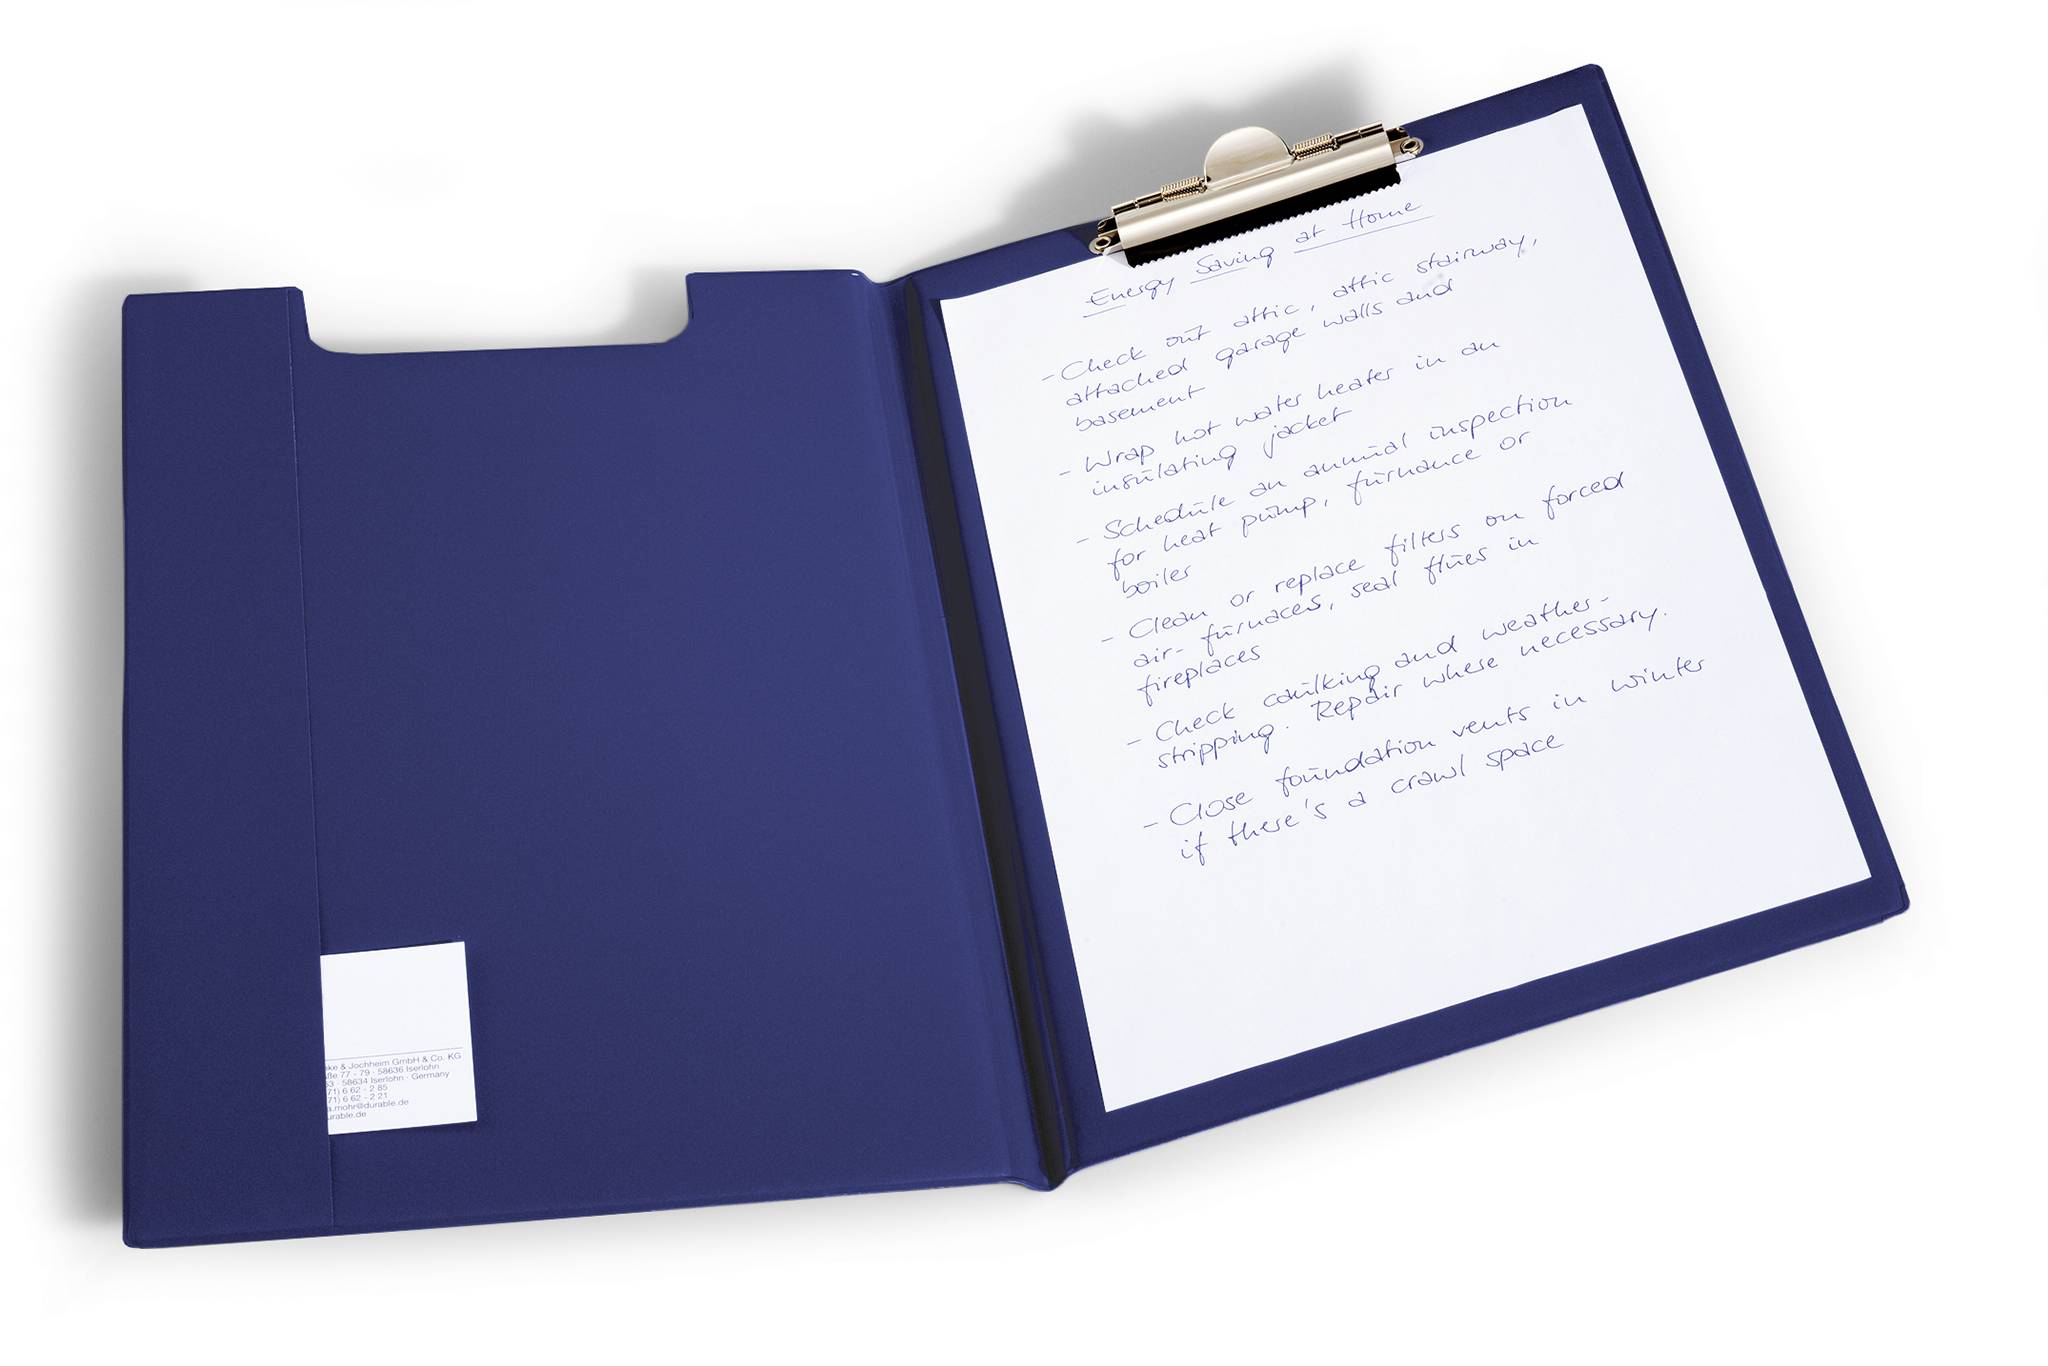 Energy Saving at Home
- Check out attic, attic stairway,
attached garage walls and
basement
- Wrap hot water heater in an
insulating jacket
- Schedule an annual inspection
for heat pump, furnance or
boiler
- Clean or replace filters on forced
air- furnaces, seal flues in
fireplaces
- Check caulking and weather-
stripping. Repair where necessary.
- Close foundation vents in winter
if there's a crawl space
ke & Jochheim GmbH & Co. KG
ße 77 - 79 · 58636 Iserlohn
63 · 58634 Iserlohn · Germany
71) 6 62 - 2 85
71) 6 62 - 2 21
a.mohr@durable.de
urable.de